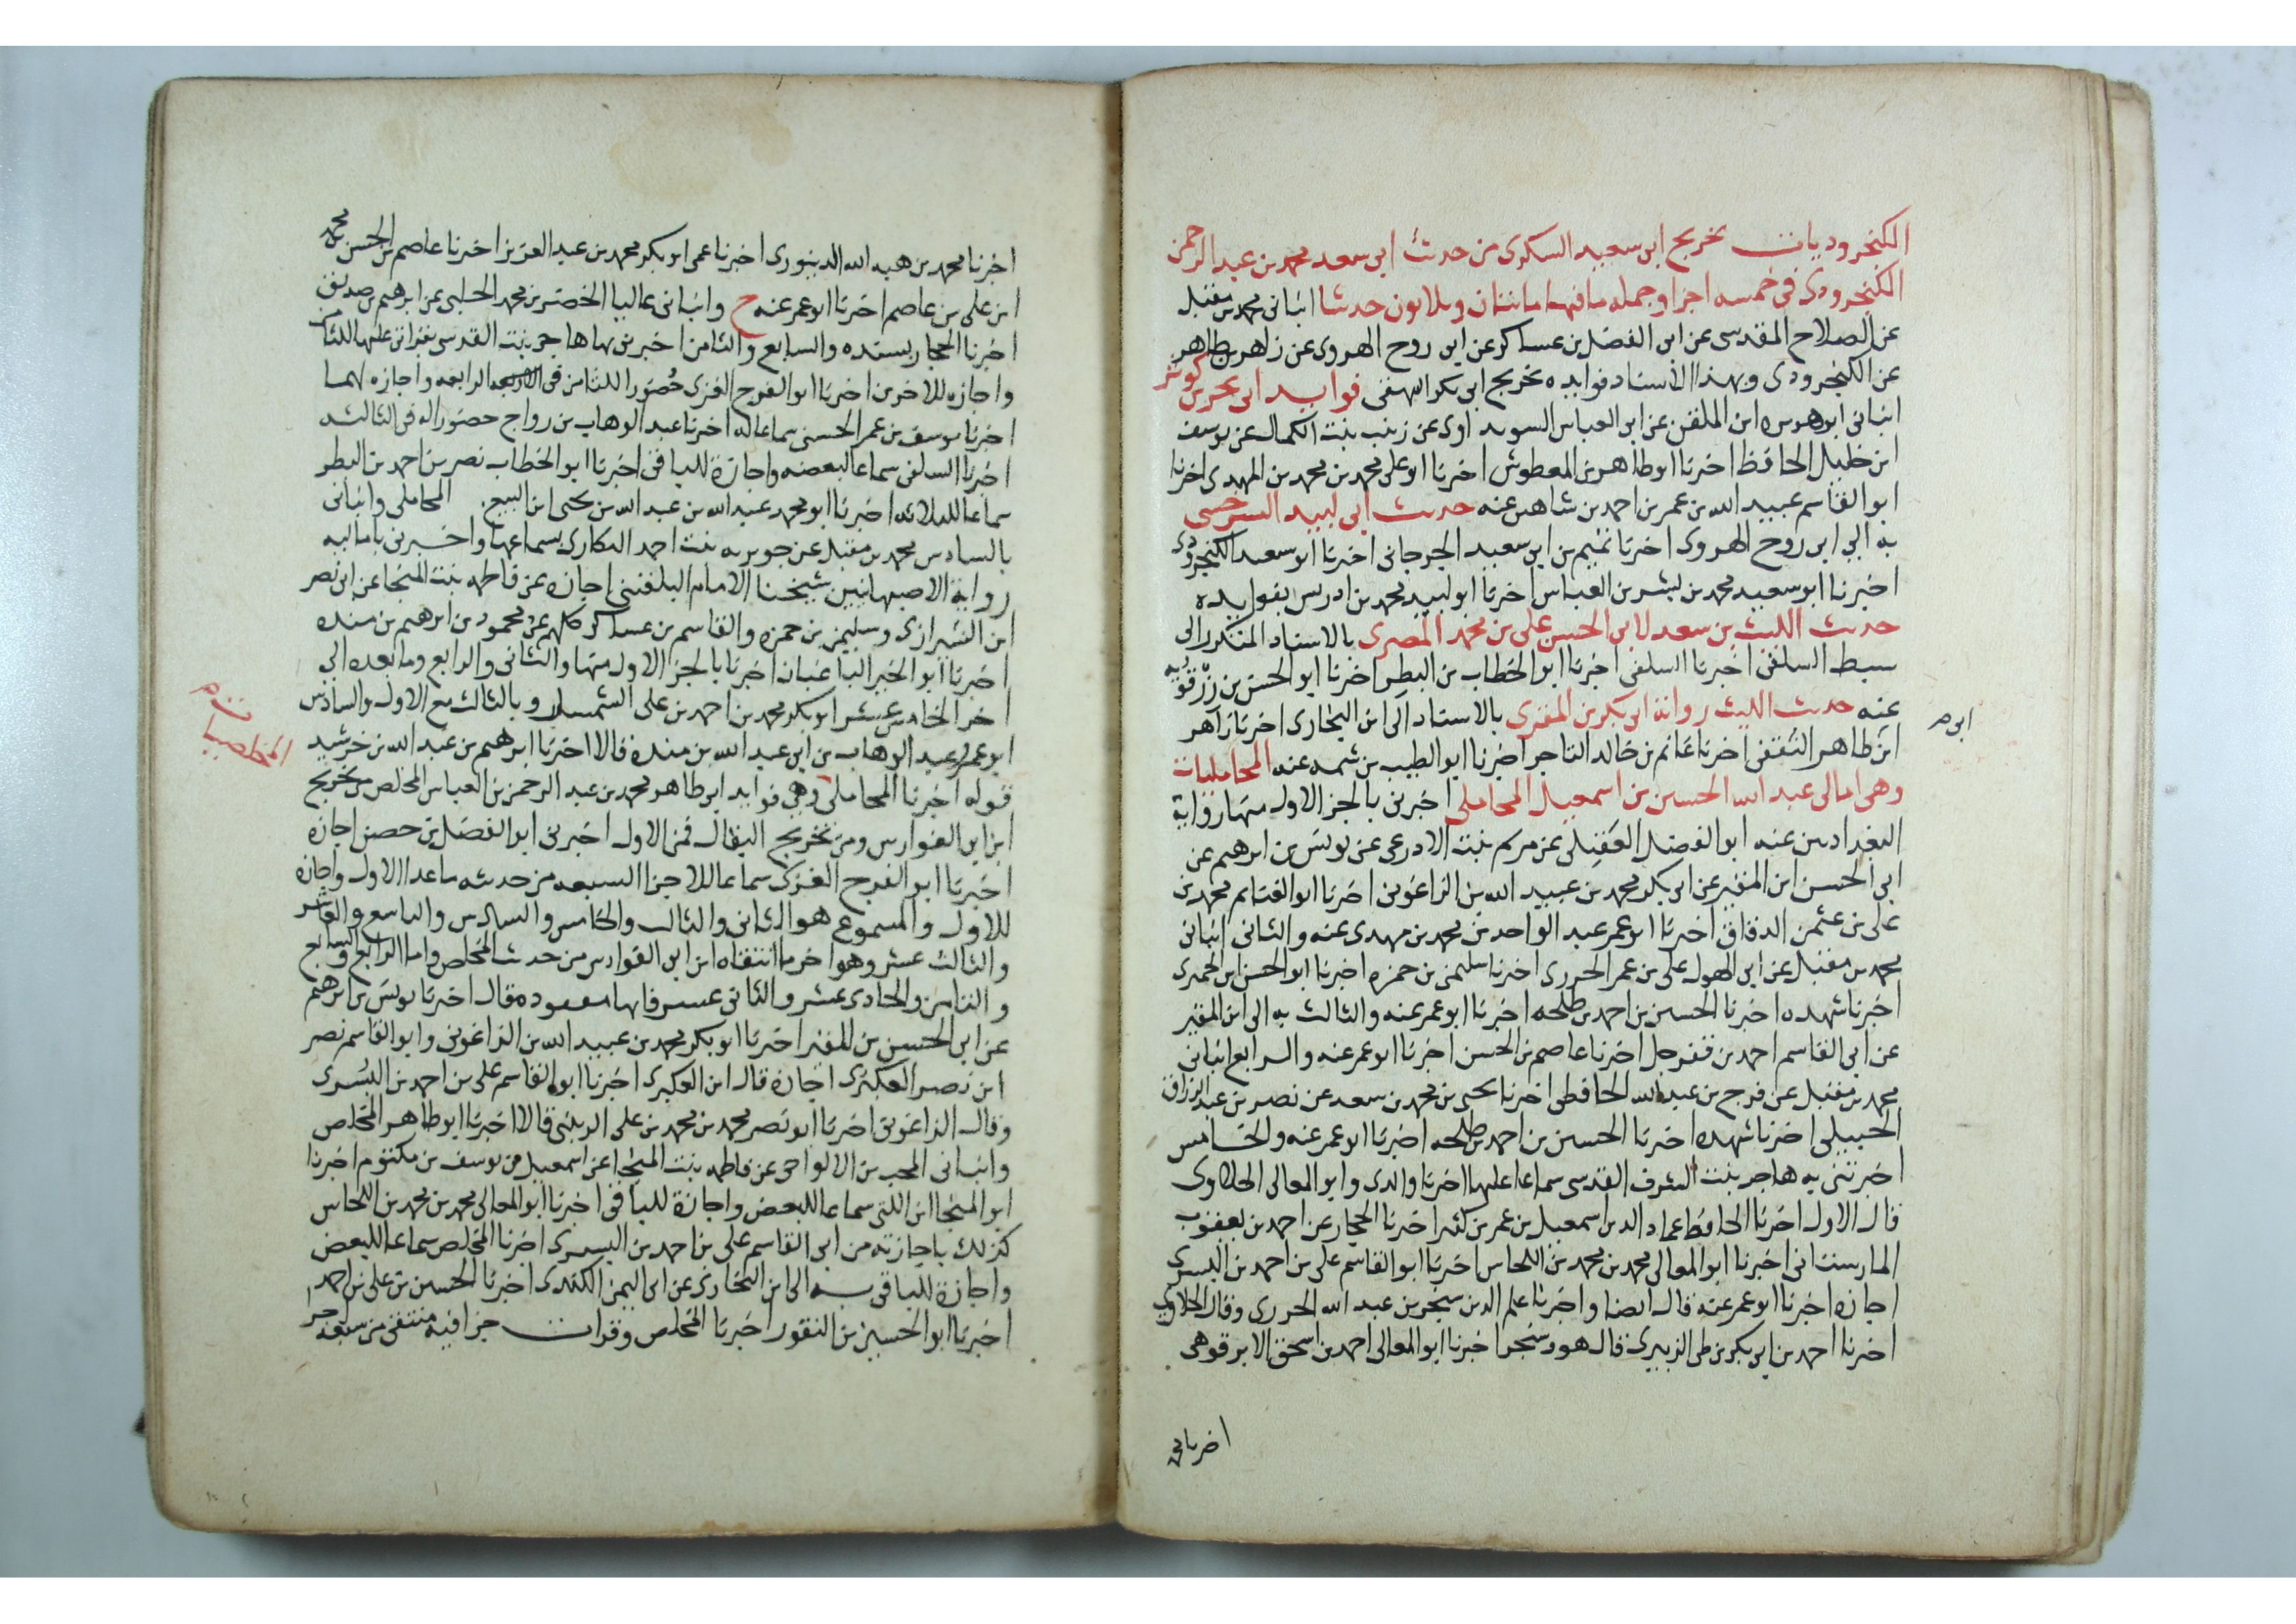 الكنجروديات تخريج ابى سعيد السكرى من حديث ابى سعد محمد بن عبد الرحمن
الكنجرودى فى خمسه اجزا وجمله ما فيها ماىتان وىلاىون حدىثا انبانى محمد بن مقبل
عن الصلاح المقدسى عن ابى الفضل بن عساكر عن ابى روح الهروى عن زاهر بن طاهر
عن الكنجرودى وبهذا الاسناد فوايده تخريج ابى بكر البيهقى فوايد ابى بحر بن كوثر
انبانى ابو هريره ابن الملقن عن ابى العباس السويداوى عن زينب بنت الكمال عن يوسف
ابن خليل الحافظ اخبرنا ابو طاهر بن المعطوش اخبرنا ابو على محمد بن محمد بن المهدى اخبرنا
ابو القاسم عبيد الله بن عمر بن احمد بن شاهين عنه حديث ابى لبيد السرخسى
به الى ابى روح الهروى اخبرنا تميم بن ابى سعيد الجرجانى اخبرنا ابو سعد الكنجرودى
اخبرنا ابو سعيد محمد بن بشر بن العباس اخبرنا ابو لبيد محمد بن ادريس بفوايده
حديث الليث بن سعد لابى الحسن على بن محمد المصرى بالاسناد المتكرر الى
سبط السلفى اخبرنا السلفى اخبرنا ابو الخطاب بن البطر اخبرنا ابو الحسن بن رزقويه
عنه حديث الليث رواية ابى بكر بن المقرى بالاسناد الى ابن البخارى اخبرنا زاهر
ابى م
ابن طاهر الثقفى اخبرنا غانم بن خالد التاجر اخبرنا ابو الطيب بن شمه عنه المحامليات
وهى امالى عبد الله الحسين بن اسمعيل المحاملى اخبرنى بالجز الاول منها رواية
البغداديين عنه ابو الفضل العقبلى عن مريم بنت الاذرعى عن يونس بن ابرهيم عن
ابى الحسن ابن المقير عن ابى بكر محمد بن عبيد الله بن الزاغونى اخبرنا ابو الغنايم محمد بن
على بن عثمن الدقاق اخبرنا ابو عمر عبد الواحد بن محمد بن مهدى عنه والثانى انبانى
محمد بن مقبل عن ابى الهول على بن عمر الجزرى اخبرنا سليمن بن حمزه اخبرنا ابو الحسن ابن الجميزى
اخبرنا شهده اخبرنا الحسين بن احمد بن طلحه اخبرنا ابو عمر عنه والثالث به الى ابن المقير
عن ابى القاسم احمد بن قفرجل اخبرنا عاصم بن الحسن اخبرنا ابو عمر عنه والرابع انبانى
محمد بن مقبل عن فرج بن عبد الله الحافظى اخبرنا يحيى بن محمد بن سعد عن نصر بن عبد الرزاق
الحنبلى اخبرنا شهده اخبرنا الحسين بن احمد بن طلحه اخبرنا ابو عمر عنه والخامس
اخبرتنى به هاجر بنت الشرف القدسى سماعا عليها اخبرنا والدى وابو المعالى الحلاوى
قال الاول اخبرنا الحافظ عماد الدين اسمعيل بن عمر بن كثير اخبرنا الحجار عن احمد بن يعقوب
المارستانى اخبرنا ابو المعالى محمد بن محمد بن اللحاس اخبرنا ابو القاسم على بن احمد بن البسرى
اجازه اخبرنا ابو عمر عنه قال ايضا واخبرنا علم الدين سنجر بن عبد الله الجزرى وقال الحلاوى
اخبرنا احمد بن ابى بكر بن طى الزبيرى قال هو وسنجر اخبرنا ابو المعالى احمد بن اسحق الابرقوهى
اخبرنا محمد
اخبرنا محمد بن هبه الله الدينورى اخبرنا عمى ابو بكر محمد بن عبد العزيز اخبرنا عاصم بن الحسن بن محمد
ابن على بن عاصم اخبرنا ابو عمر عنه ح وانبانى عاليا الخضر بن محمد الحلبى عن ابرهيم بن صديق
اخبرنا الحجار بسنده والسابع والثامن اخبرتنى بها هاجر بنت القدسى بقراتى عليها للثامن
واجازه للاخر من اخبرنا ابو الفرج الغزى حضورا للثامن فى الرابعه واجازه لهما
اخبرنا يوسف بن عمر الحسنى سماعا له اخبرنا عبد الوهاب بن رواج حضورا له فى الثالثه
اخبرنا السلفى سماعا لبعضه واجازة للباقى اخبرنا ابو الخطاب نصر بن احمد بن البطر
سماعا للثلاثه اخبرنا ابو محمد عبد الله بن عبد الله بن يحيى ابن البيع المحاملى وانبانى
بالسادس محمد بن مقبل عن جويريه بنت احمد الهكارى بسماعها واخبرنى باماليه
رواية الاصبهانيين شيخنا الامام البلقينى اجازه عن فاطمه بنت المنجا عن ابى نصر
ابن الشيرازى وسليمن بن حمزه والقاسم بن عساكر كلهم عن محمود بن ابرهيم بن منده
اخبرنا ابو الخير الباغبان اخبرنا بالجز الاول منها والثانى والرابع وما بعده الى
اخر الخامس عشر ابو بكر محمد بن احمد بن على السمسار وبالثالث مع الاول والسادس
ابو عمرو عبد الوهاب بن ابى عبد الله بن منده قالا اخبرنا ابرهيم بن عبد الله بن خرشيد
المخلصيات
قوله اخبرنا المحاملى وهى فوايد ابى طاهر محمد بن عبد الرحمن بن العباس المخلص من تخريج
ابن ابى الفوارس ومن تخريج البقال فمن الاول اخبرنى ابو الفضل بن حصن اجازه
اخبرنا ابو الفرج الغزى سماعا للاجزا السبعه من حديثه ما عدا الاول واجازه
للاول والمسموع هو الثانى والثالث والخامس والسادس والتاسع والعاشر
والثالث عشر وهو اخر ما انتقاه ابن ابى الفوارس من حديث المخلص واما الرابع والسابع
والثامن والحادى عشر والثانى عشر فانها مفقوده قال اخبرنا يونس بن ابرهيم
عن ابى الحسن بن المقير اخبرنا ابو بكر محمد بن عبيد الله بن الزاغونى وابو القاسم نصر
ابن نصر العكبرى اجازه قال ابن العكبرى اخبرنا ابو القاسم على بن احمد بن البسرى
وقال الزاغونى اخبرنا ابو نصر محمد بن محمد بن على الزينبى قالا اخبرنا ابو طاهر المخلص
وانبانى المحب بن الالواحى عن فاطمه بنت المنجا عن اسمعيل بن يوسف بن مكتوم اخبرنا
ابو المنجا ابن اللتى سماعا للبعض واجازة للباقى اخبرنا ابو المعالى محمد بن محمد بن اللحاس
كذلك باجازته من ابى القاسم على بن احمد بن البسرى اخبرنا المخلص سماعا للبعض
واجازة للباقى به الى ابن البخارى عن ابى اليمن الكندى اخبرنا الحسين بن على بن احمد
اخبرنا ابو الحسين بن النقور اخبرنا المخلص وقرات جزا فيه منتقى من سبعه اجزا